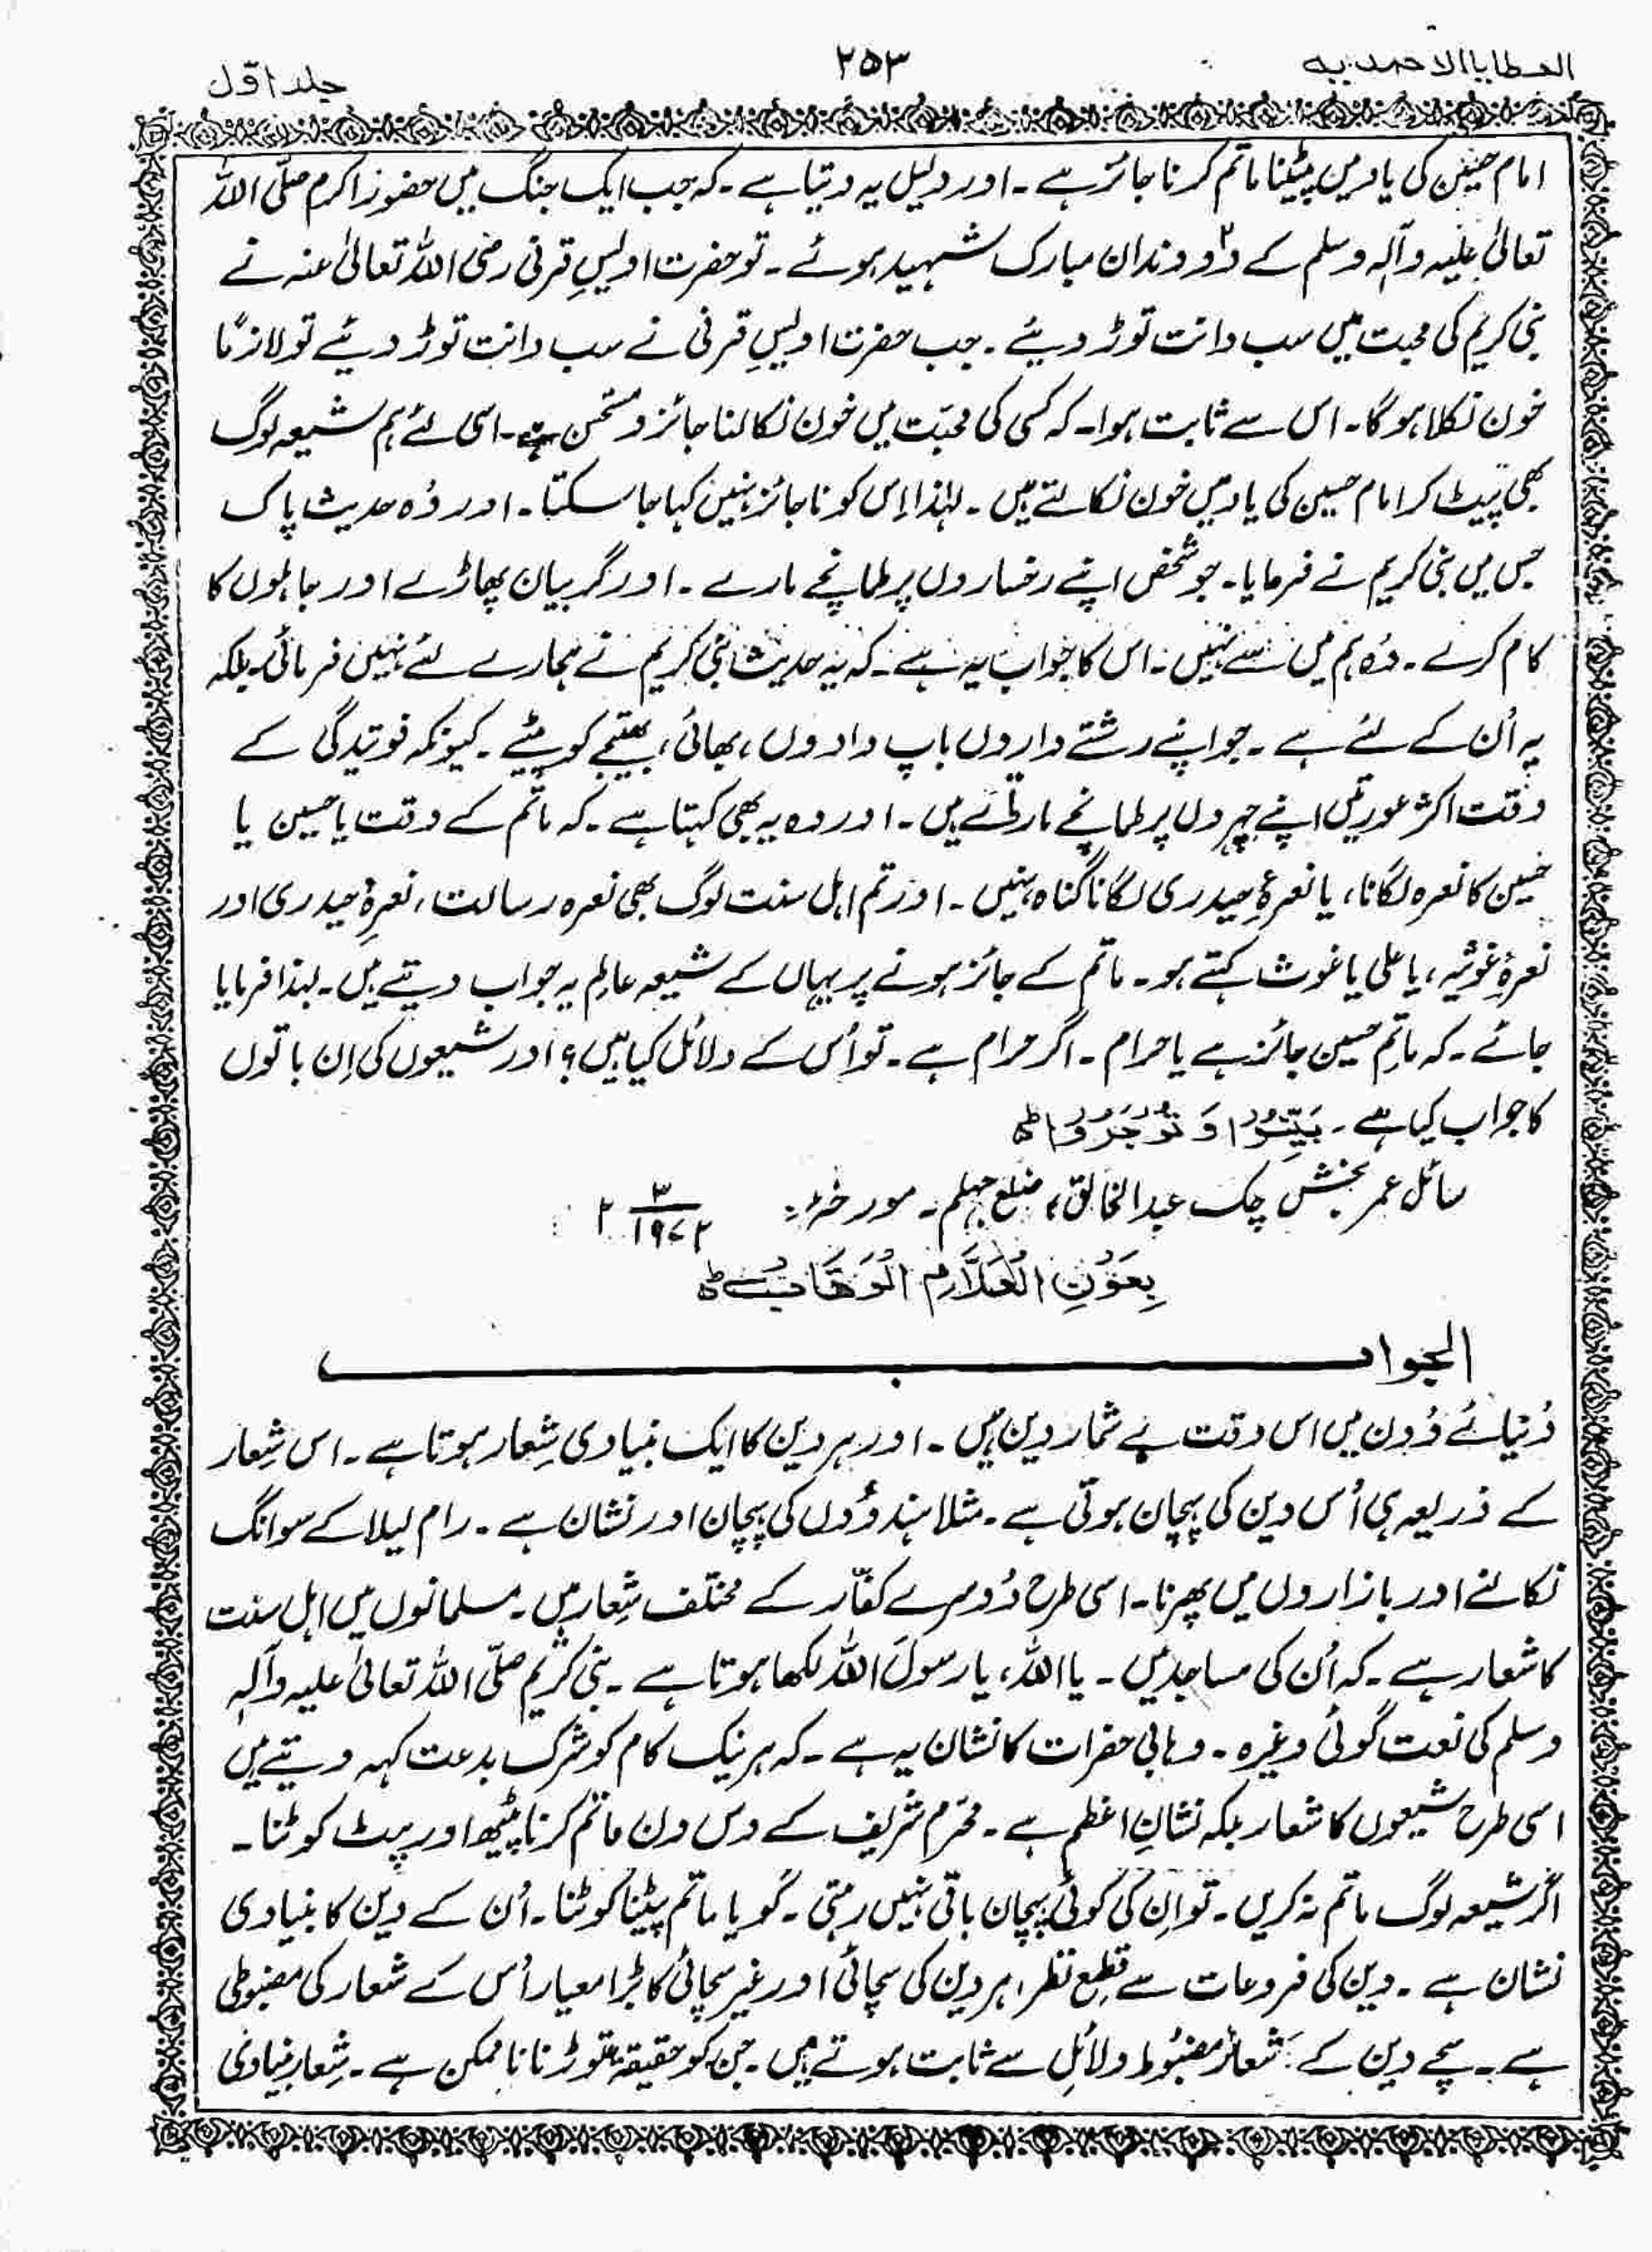 العطایا الاحمدیہ
۲۵۳
جلد اوّل
امام حسین کی یاد میں پیٹنا ماتم کرنا جائز ہے ۔ اور دلیل یہ دیتا ہے ۔ کہ جب ایک جنگ میں حضور اکرم صلّی اللہ
تعالیٰ علیہ وآلہٖ وسلم کے دو۲ دندان مبارک شہید ہوئے ۔ تو حضرت اویسِ قرنی رضی اللہ تعالیٰ عنہ نے
نبی کریم کی محبت میں سب دانت توڑ دیئے ۔ جب حضرت اویسِ قرنی نے سب دانت توڑ دیئے تو لازمًا
خون نکلا ہوگا ۔ اس سے ثابت ہوا ۔ کہ کسی کی محبّت میں خون نکالنا جائز و مستحسن ہے ۔ اسی لئے ہم شیعہ لوگ
بھی پیٹ کر امام حسین کی یاد میں خون نکالتے ہیں ۔ لہٰذا اِس کو ناجائز نہیں کہا جا سکتا ۔ اور وُہ حدیث پاک
جس میں نبی کریم نے فرمایا ۔ جو شخص اپنے رخساروں پر طمانچے مارے ۔ اور گریبان پھاڑے اور جاہلوں کا
کام کرے ۔ وُہ ہم میں سے نہیں ۔ اس کا جواب یہ ہے ۔ کہ یہ حدیث نبی کریم نے ہمارے لئے نہیں فرمائی ۔ بلکہ
یہ اُن کے لئے ہے ۔ جو اپنے رشتے داروں باپ دادوں ، بھائی ، بھتیجے کو پیٹے ۔ کیونکہ فوتیدگی کے
وقت اکثر عورتیں اپنے چہروں پر طمانچے مارتی ہیں ۔ اور وہ یہ بھی کہتا ہے ۔ کہ ماتم کے وقت یا حسین یا
حسین کا نعرہ لگانا ، یا نعرۂ حیدری لگانا گناہ نہیں ۔ اور تم اہل سنت لوگ بھی نعرہ رسالت ، نعرۂ حیدری اور
نعرۂ غوثیہ ، یا علی یا غوث کہتے ہو ۔ ماتم کے جائز ہونے پر یہاں کے شیعہ عالِم یہ جواب دیتے ہیں ۔ لہٰذا فرمایا
جائے ۔ کہ ماتمِ حسین جائز ہے یا حرام ۔ اگر حرام ہے ۔ تو اُس کے دلائل کیا ہیں ؟ اور شیعوں کی اِن باتوں
کا جواب کیا ہے ۔ بَیِّنُوْا وَ تُوْجَرُوْا ط
سائل عمر بخش چک عبدالخالق ، ضلع جہلم ۔ مورخہ : ۲ ۳/۱۹۷۲
بِعَوْنِ الْعَلَّامِ الْوَهَّابِ ط
الجواب
دُنیائے دُون میں اس وقت بے شمار دین ہیں ۔ اور ہر دین کا ایک بنیادی شِعار ہوتا ہے ۔ اس شِعار
کے ذریعہ ہی اُس دین کی پہچان ہوتی ہے ۔ مثلا ہندوؤں کی پہچان اور نشان ہے ۔ رام لیلا کے سوانگ
نکالنے اور بازاروں میں پھرنا ۔ اسی طرح دُوسرے کفّار کے مختلف شِعار ہیں ۔ مسلمانوں میں اہل سنت
کا شعار ہے ۔ کہ اُن کی مساجد میں ۔ یا اللہ ، یا رسولَ اللہ لکھا ہوتا ہے ۔ نبی کریم صلّی اللہ تعالیٰ علیہ وآلہٖ
وسلم کی نعت گوئی وغیرہ ۔ وہابی حضرات کا نشان یہ ہے ۔ کہ ہر نیک کام کو شرک بدعت کہہ دیتے ہیں
اسی طرح شیعوں کا شعار بلکہ نشانِ اعظم ہے ۔ محرّم شریف کے دس دن ماتم کرنا پیٹھ اور پیٹ کوٹنا ۔
اگر شیعہ لوگ ماتم نہ کریں ۔ تو اِن کی کوئی پہچان باقی نہیں رہتی ۔ گویا ماتم پیٹنا کوٹنا ۔ اُن کے دین کا بنیادی
نشان ہے ۔ دین کی فروعات سے قطِع نظر ، ہر دین کی سچائی اور غیر سچائی کا بڑا معیار اُس کے شعار کی مضبوطی
ہے ۔ سچے دین کے شعائر مضبُوط دلائل سے ثابت ہوتے ہیں ۔ جن کو حقیقۃً توڑنا ناممکن ہے ۔ شِعار بنیادی